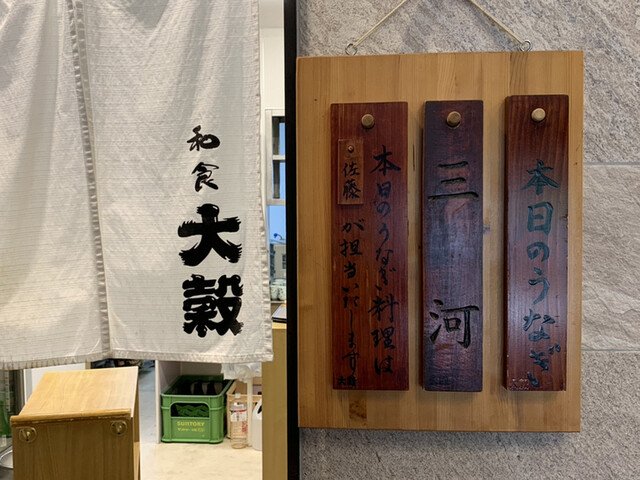 和食
大穀
本日のうなぎ
三河
本日のうなぎ料理は
佐藤
が担当いたします
大穀
SUNTORY